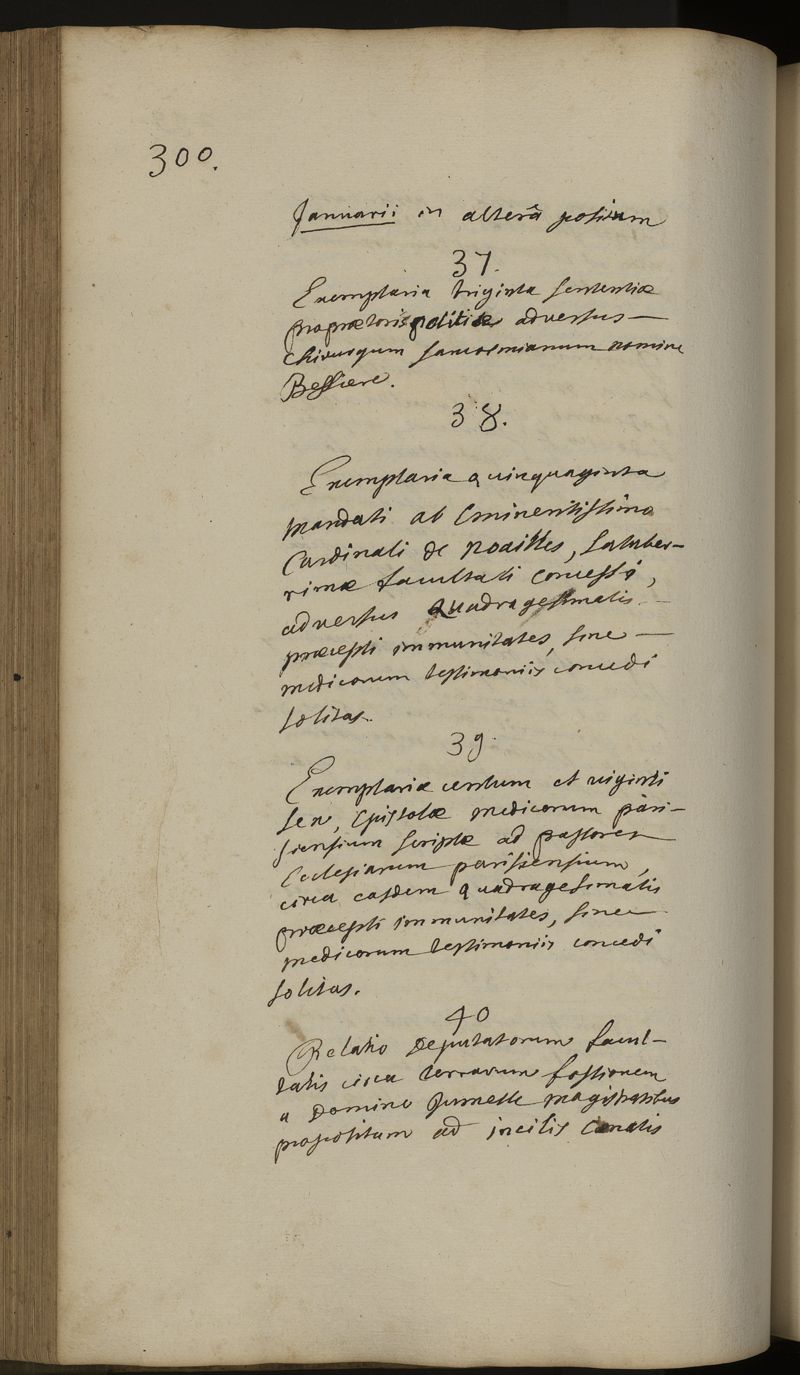 300.
Januarii in alterâ positum
37.
Exemplaria triginta sententiæ
propætoris politiæ adversus —
chirurgum sancosmianum nomine
Bessiere.
38.
Exemplaria quinquaginta
mandati ab Eminentissimo
Cardinali de Noailles, saluber-
rimæ facultati concessi,
adversus quadragesimalis —
præcepti immunitates, sine —
medicorum testimoniis concedi
solitas.
39.
Exemplaria centum et viginti
sex, Epistolæ medicorum pari-
siensium scriptæ ad pastores
Ecclesiarum parisiensium,
circa easdem quadragesimalis
præcepti immunitates, sine
medicorum testimoniis concedi
solitas.
40
Relatio Deputatorum facul-
tatis circa terrarum fossionem
a Domino Jumelle magistratibus
propositam ad incilis canalis